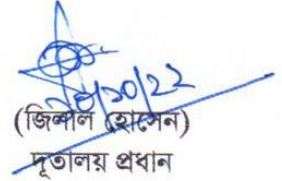 ২৮/১০/২২
(জিলাল হোসেন)
দূতালয় প্রধান